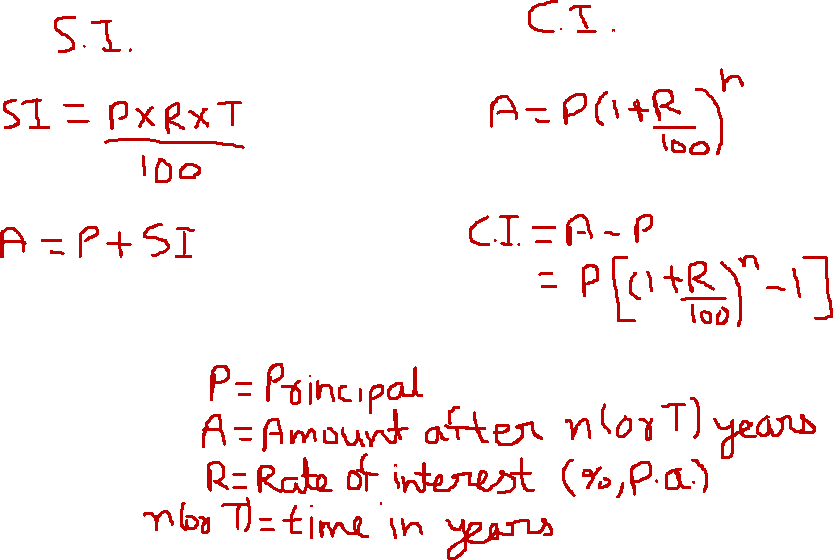 S.I.
SI = P×R×T
100
A = P + SI
C.I.
A = P(1+R/100)^n
C.I. = A - P
= P[(1+R/100)^n - 1]
P = Principal
A = Amount after n(or T) years
R = Rate of interest (%, P.a.)
n(or T) = time in years